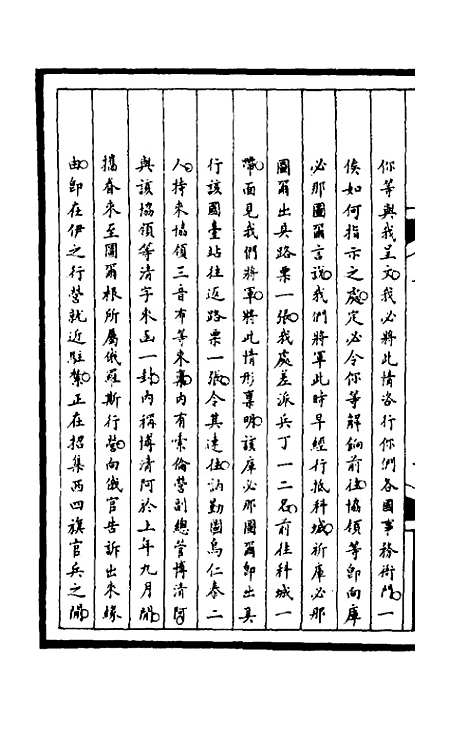 你等與我呈文我必將此情洛行你們各國事務衙門一
俟如何指示之處定必令你等解餉前往協領等卽向庫
必那圖爾言說我們將軍此時早經行抵科城祈庫必那
圖爾出具路票一張我處差派兵丁一二名前往科城一
帶面見我們將軍將此情形稟明該庫必那圖爾卽出具
行該國臺站往返路票一張令其達往訥勒圖烏仁泰二
人持來協領三音布等來稟內有索倫營副總管博清阿
與該協領等清字來函一封內稱博清阿於上年九月間
攜眷來至圖爾根所屬俄羅斯行營向俄官告訴出來緣
由卽在伊之行營就近駐紮正在招集西四旗官兵之間